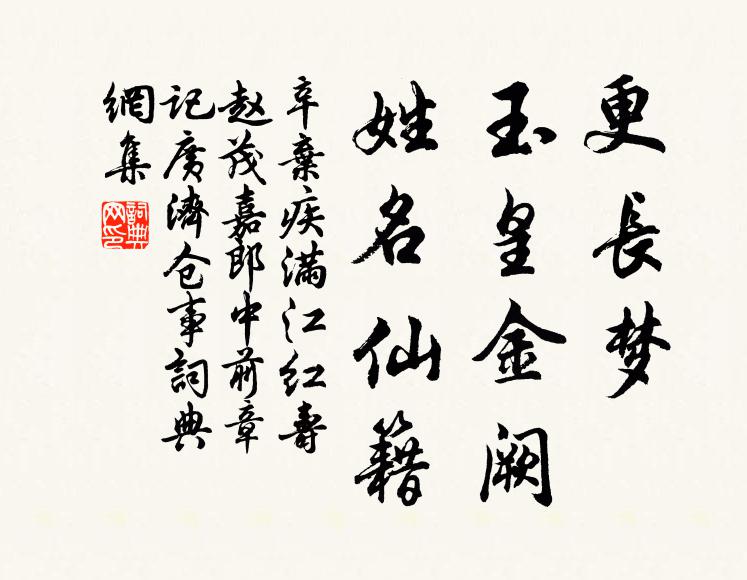 更长梦
玉皇金阙
姓名仙籍
辛棄疾满江红壽
赵茂嘉郎中前章
记廣濟仓事詞典
網集
詞典网印